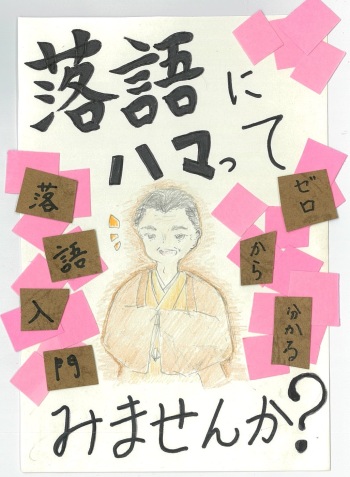 落語に
ハマって
みませんか?
ゼロ
から
分かる
落
語
入
門